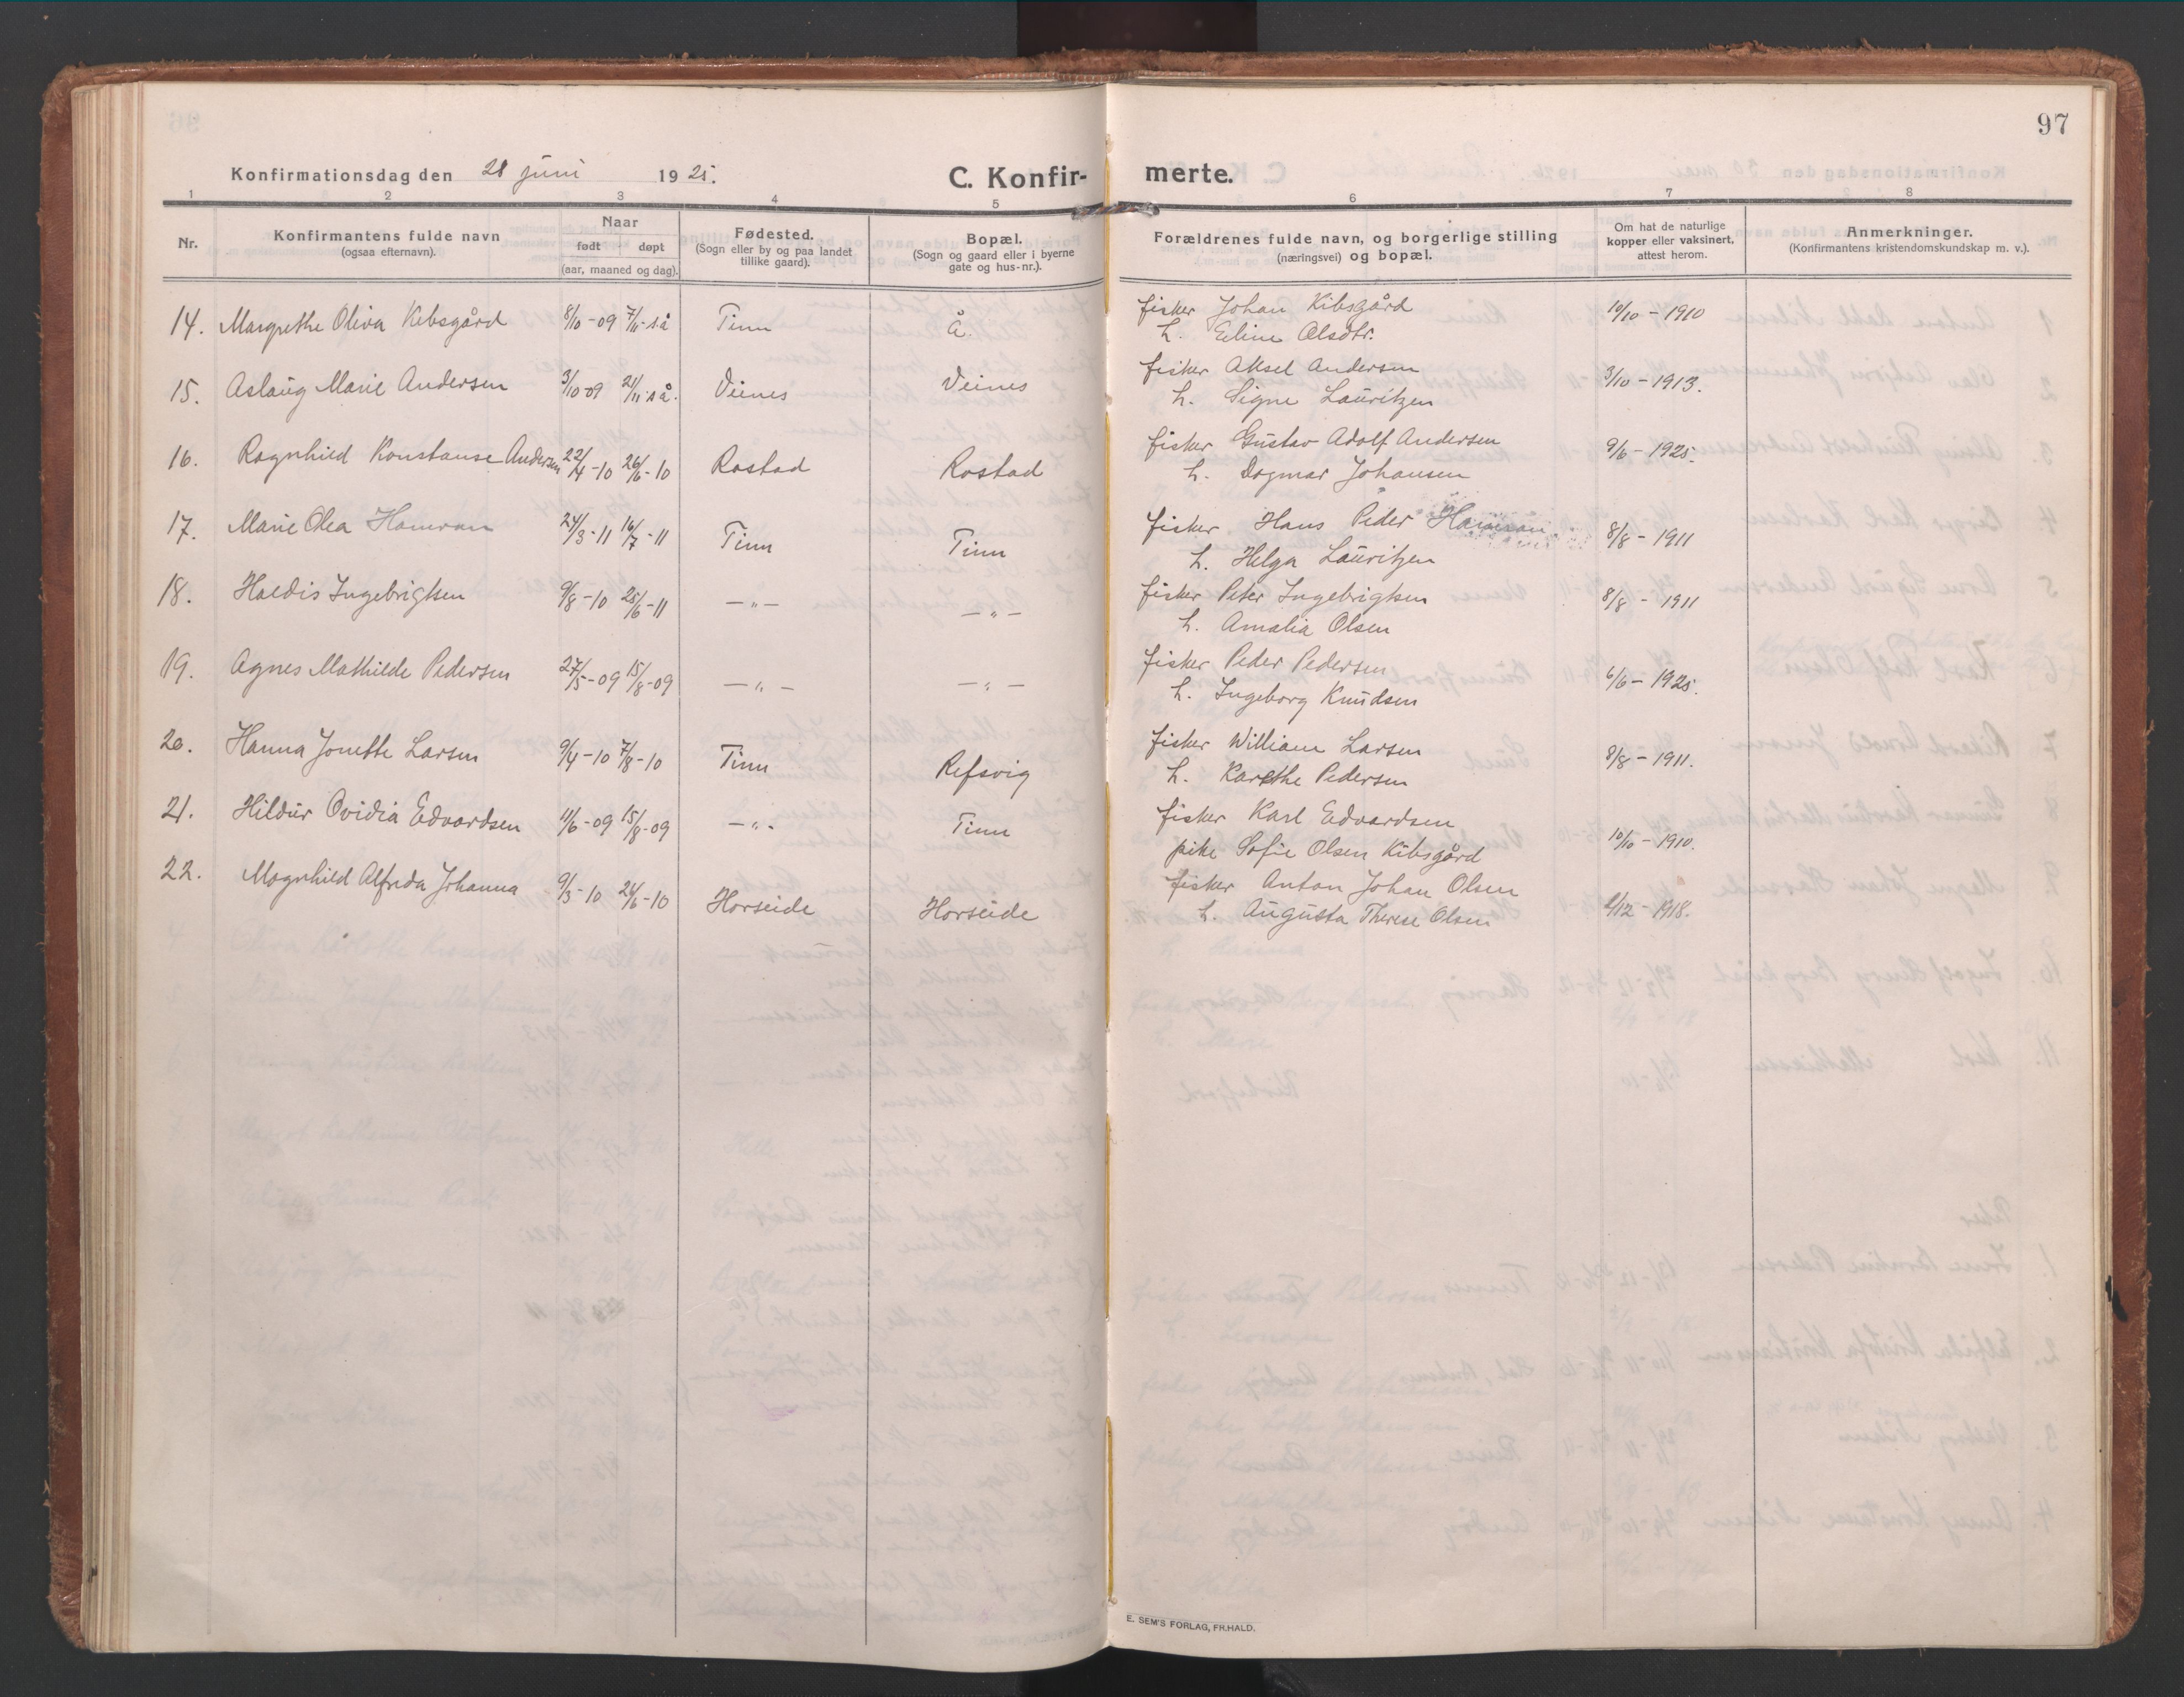 97
Konfirmationsdag den 21 juni 1925. C. Konfir- merte.
1 2 3 4 5 6 7 8
Nr.
Konfirmantens fulde navn
(ogsaa efternavn).
Naar
født døpt
(aar, maaned og dag).
Fødested.
(Sogn eller by og paa landet
tillike gaard).
Bopæl.
(Sogn og gaard eller i byerne
gate og hus-nr.).
Forældrenes fulde navn, og borgerlige stilling
(næringsvei) og bopæl.
Om hat de naturlige
kopper eller vaksinert,
attest herom.
Anmerkninger.
(Konfirmantens kristendomskundskap m. v.).
14. Margrethe Oliva Kibsgård 8/10-09 7/11-s.å Tinn Å. fisker Johan Kibsgård 10/10-1910
h. Eline Olsdtr.
15. Aslaug Marie Andersen 3/10-09 21/11-s.å. Veines Veines fisker Aksel Andersen 3/10-1913.
h. Signe Lauritzen
16. Ragnhild Konstanse Andersen 22/4-10 26/6-10 Rostad Rostad fisker Gustav Adolf Andersen 9/6-1925.
h. Dagmar Johansen
17. Marie Olea Hamran 24/3-11 16/7-11 Tinn Tinn fisker Hans Peder Hamran 8/8-1911
h. Helga Lauritzen
18. Haldis Ingebrigtsen 9/8-10 25/6-11 —"— —"— fisker Peter Ingebrigtsen 8/8-1911
h. Amalia Olsen
19. Agnes Mathilde Pedersen 27/5-09 15/8-09 —"— —"— fisker Peder Pedersen 6/6-1925.
h. Ingeborg Knudsen
20. Hanna Jonette Larsen 9/4-10 7/8-10 Tinn Refsvig fisker William Larsen 8/8-1911.
h. Karethe Pedersen
21. Hildur Ovidia Edvardsen 11/6-09 15/8-09 —"— Tinn fisker Karl Edvardsen 10/10-1910.
pike Sofie Olsen Kibsgård
22. Magnhild Alfrida Johanna 9/3-10 26/6-10 Horseide Horseide fisker Anton Johan Olsen 2/12-1918.
h. Augusta Therese Olsen
E. SEM'S FORLAG, FR.HALD.